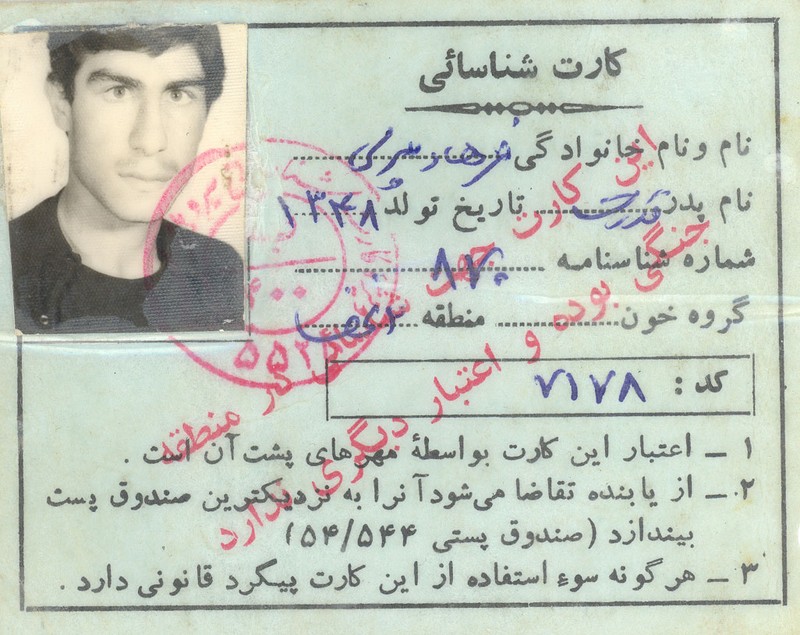 کارت شناسائی
نام و نام خانوادگی فرهاد
نام پدر قدرت تاریخ تولد ۱۳۴۸
شماره شناسنامه ۸۷۰
گروه خون منطقه
کد : ۷۱۷۸
۱ ـ اعتبار این کارت بواسطهٔ مهرهای پشت آن است .
۲ ـ از یابنده تقاضا می‌شود آنرا به نزدیکترین صندوق پست
بیندازد (صندوق پستی ۵۴/۵۴۴)
۳ ـ هرگونه سوء استفاده از این کارت پیگرد قانونی دارد .
این کارت جهت شناسائی در منطقه
جنگی بوده و اعتبار دیگری ندارد